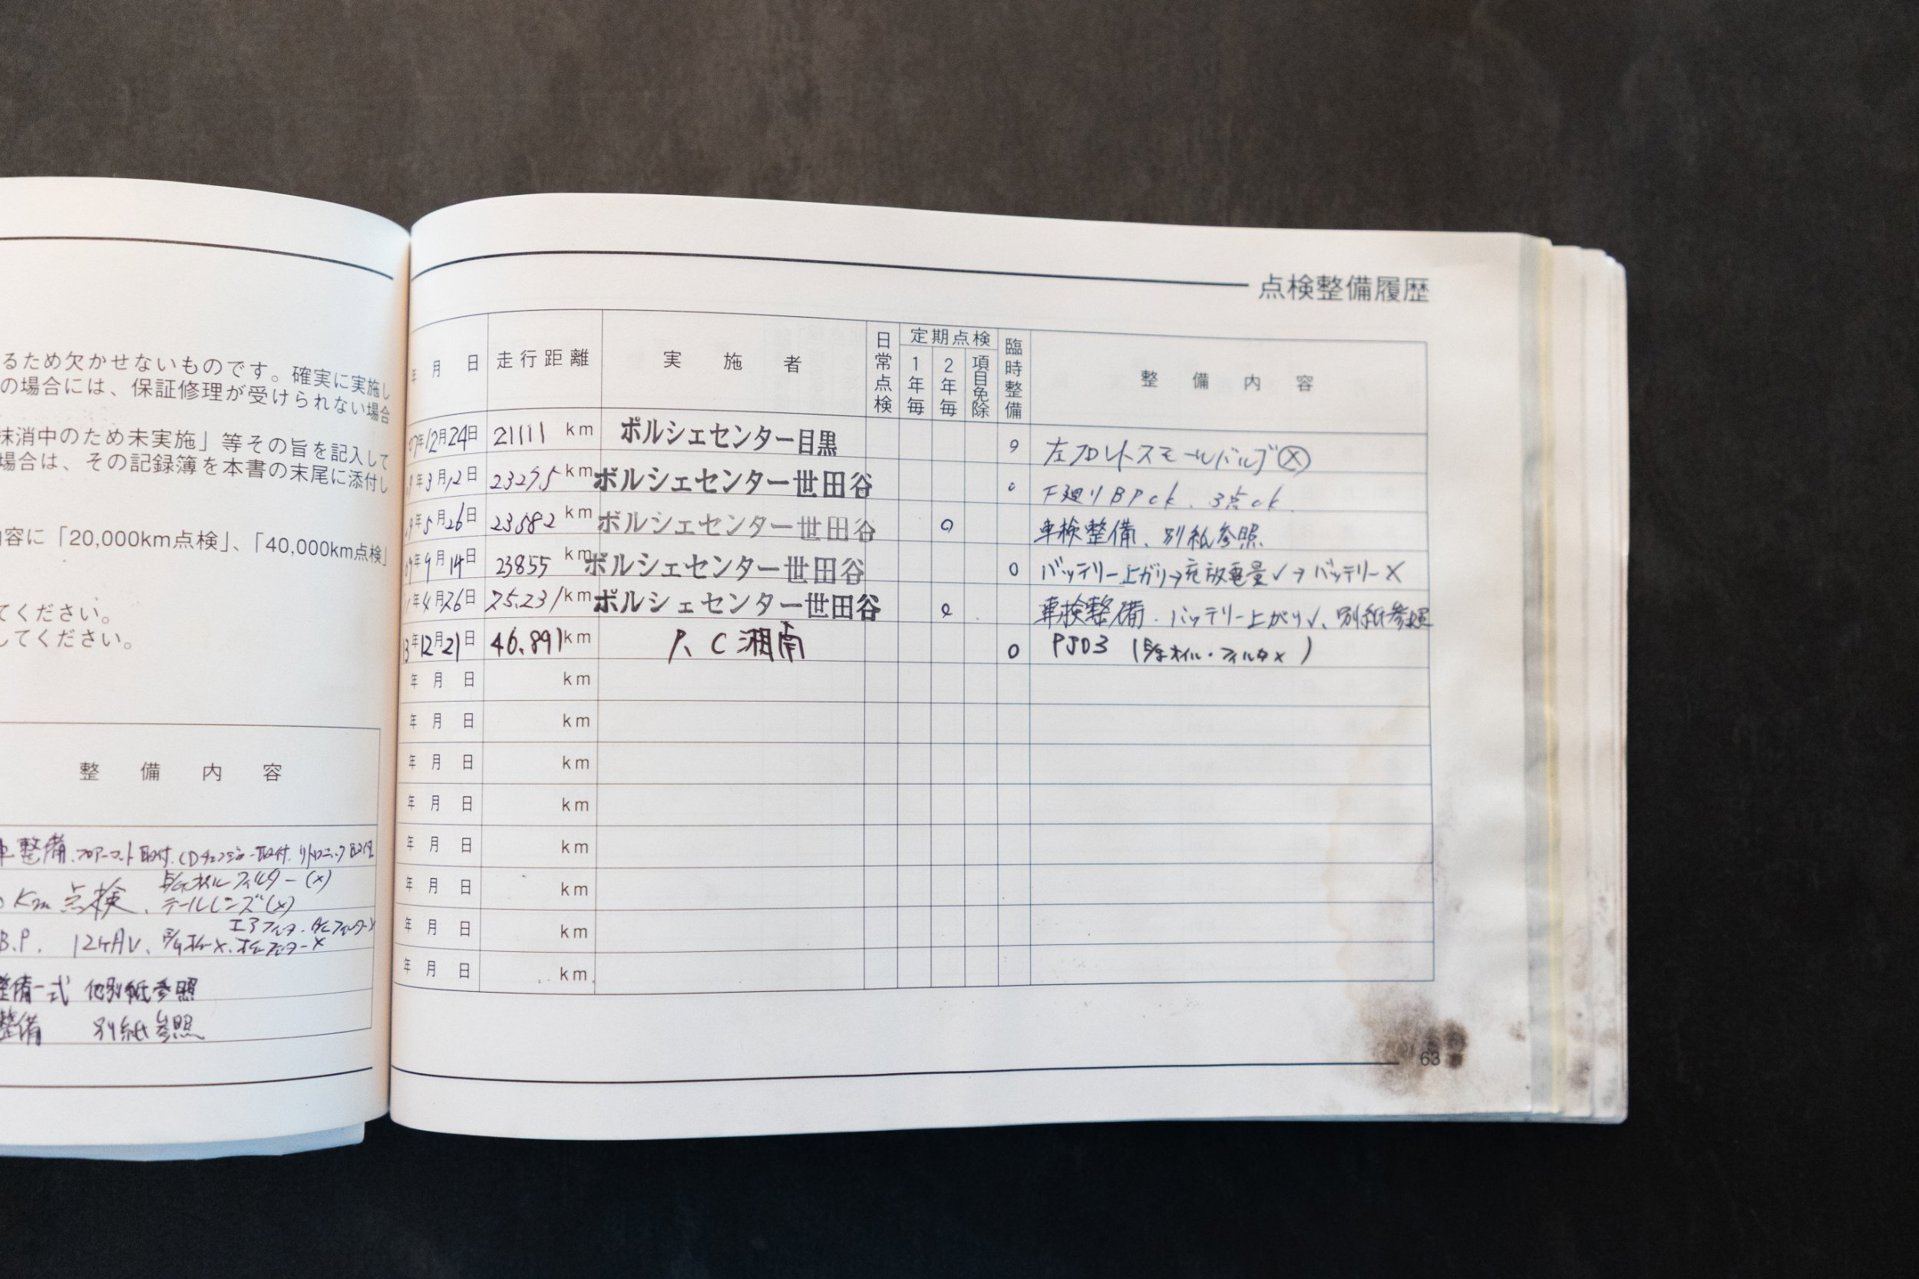 るため欠かせないものです。確実に実施し
の場合には、保証修理が受けられない場合
抹消中のため未実施」等その旨を記入して
場合は、その記録簿を本書の末尾に添付し
容に「20,000km点検」、「40,000km点検」
てください。
してください。
整備内容
整備、フロアーマット取付、CDチェンジャー取付、
Km点検、
オイルフィルター(×)
テールレンズ(×)
B.P.
整備一式 他別紙参照
整備 別紙参照
点検整備履歴
年月日 走行距離 実施者 日常点検 定期点検 1年毎 2年毎 項目免除 臨時整備 整備内容
07年12月24日 21111 km ポルシェセンター目黒 左フロントスモールバルブ⊗
年3月12日 23275 km ポルシェセンター世田谷 下廻りBPck、3点ck
9年5月26日 23582 km ポルシェセンター世田谷 ○ 車検整備、別紙参照
09年9月14日 23855 km ポルシェセンター世田谷 ○ バッテリー上がり→充放電量✓→バッテリー×
年4月26日 25.231 km ポルシェセンター世田谷 ○ 車検整備、バッテリー上がり✓、別紙参照
3年12月21日 46.891 km P.C湘南 ○ PJ03 (オイル・フィルタ×)
年月日 km
年月日 km
年月日 km
年月日 km
年月日 km
年月日 km
年月日 km
年月日 km
63